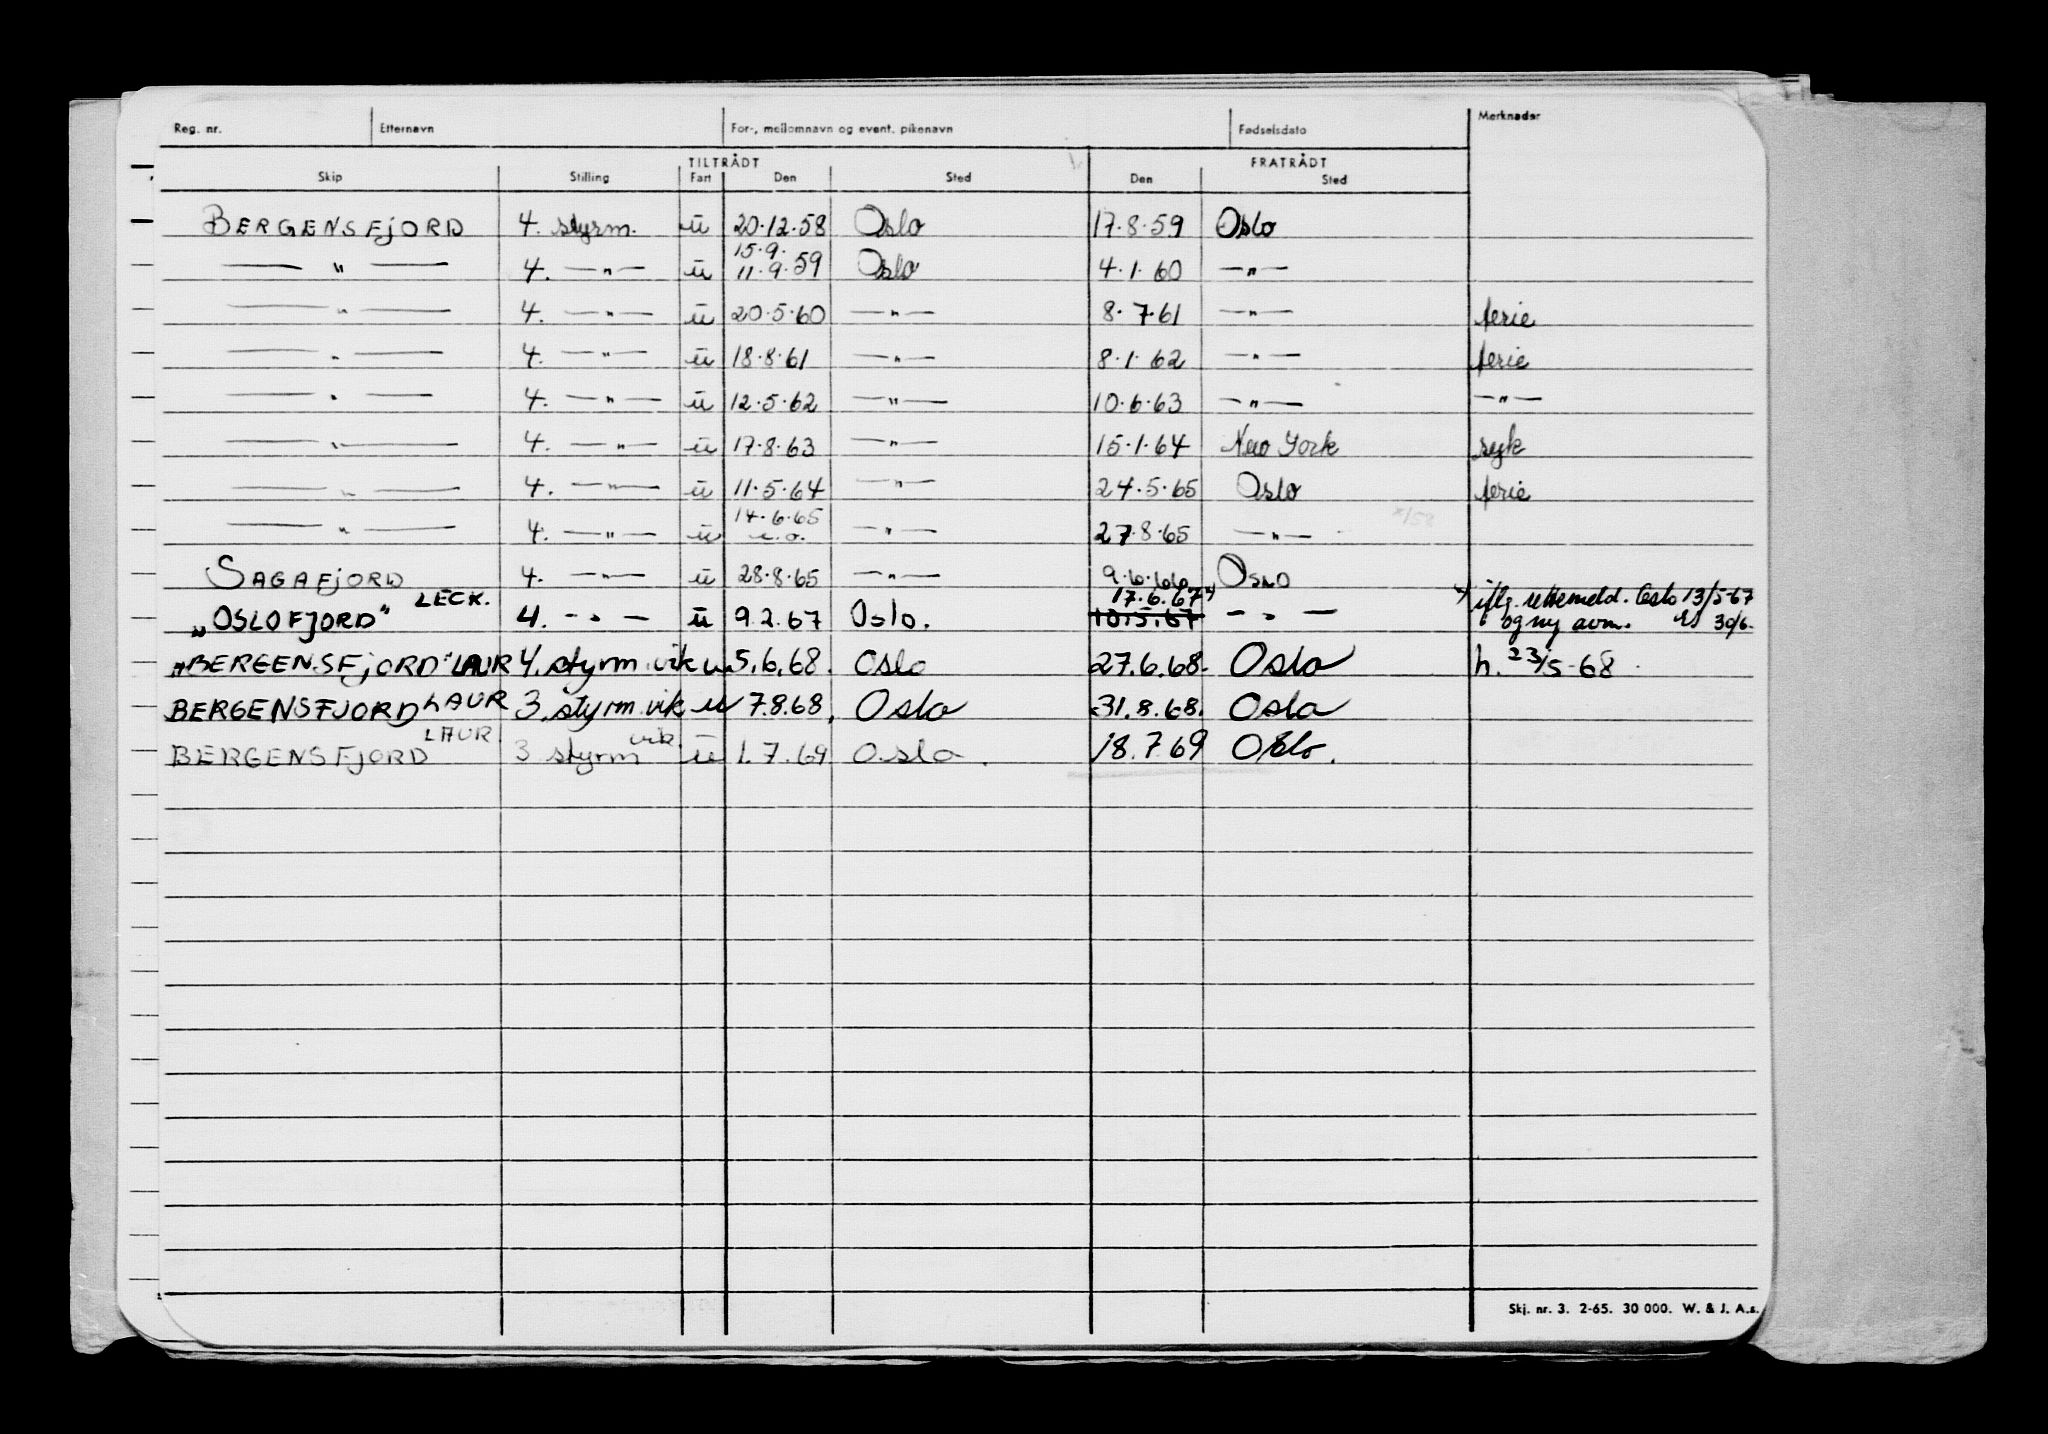 Reg. nr. Etternavn For-, mellomnavn og event. pikenavn Fødselsdato Merknader
TILTRÅDT FRATRÅDT
Skip Stilling Fart Den Sted Den Sted
BERGENSFJORD 4. styrm. u 20.12.58 Oslo 17.8.59 Oslo
15.9.
— " — 4. — " — u 11.9.59 Oslo 4.1.60 — " —
— " — 4. — " — u 20.5.60 — " — 8.7.61 — " — ferie
— " — 4. — " — u 18.8.61 — " — 8.1.62 — " — ferie
— " — 4. — " — u 12.5.62 — " — 10.6.63 — " — — " —
— " — 4. — " — u 17.8.63 — " — 15.1.64 New York syk
— " — 4. — " — u 11.5.64 — " — 24.5.65 Oslo ferie
14.6.65
— " — 4. — " — u — " — 27.8.65 — " —
SAGAFJORD 4. — " — u 28.8.65 — " — 9.6.66 Oslo
LECK. 17.6.67 x) x) iflg. Oslo 13/5-67
"OSLOFJORD" 4. — " — u 9.2.67 Oslo. 10.5.67 — " — og ny avm. 30/6.
"BERGENSFJORD" LAUR 4. styrm. vik u. 5.6.68. Oslo 27.6.68. Oslo h. 23/5-68
BERGENSFJORD LAUR 3. styrm. vik u 7.8.68. Oslo 31.8.68. Oslo
LAUR vik.
BERGENSFJORD 3 styrm u 1.7.69 Oslo. 18.7.69 Oslo.
Skj. nr. 3. 2-65. 30 000. W. & J. A.s.